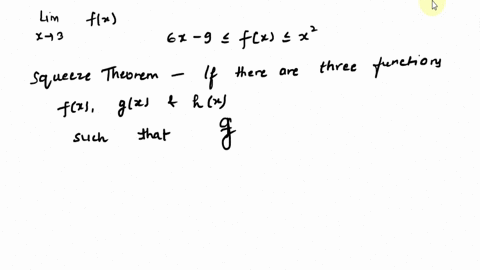 Lim f(x)
x→3
6x-9 ≤ f(x) ≤ x²
Squeeze Theorem - If there are three functions
f(x), g(x) & h(x)
such that g